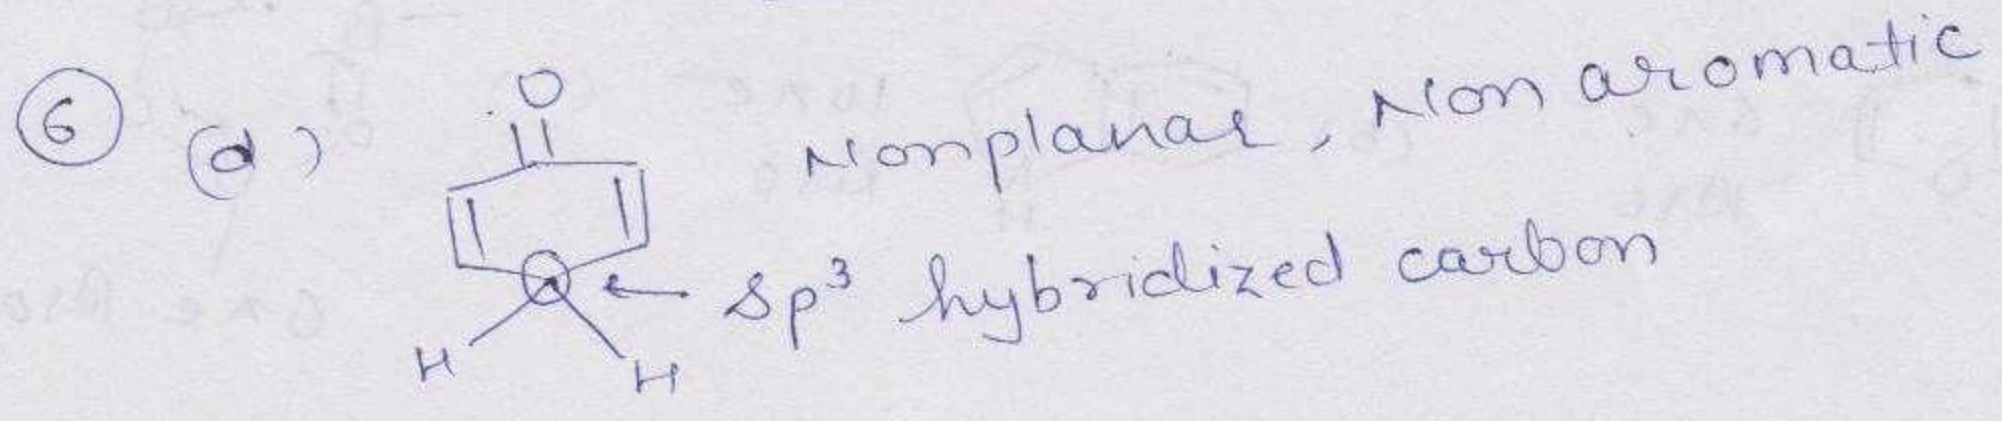 6 (d) O Nonplanar, Non aromatic
← Sp³ hybridized carbon
H H